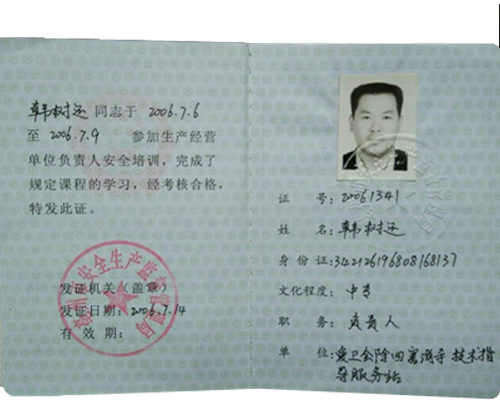 韩树还 同志于 2006.7.6
至 2006.7.9 参加生产经营
单位负责人安全培训，完成了
规定课程的学习，经考核合格，
特发此证。
安全生产监
发证机关（盖章）
发证日期：2006.7.14
有效期：
证号：20061341
姓名：韩树还
身份证：342126196808168137
文化程度：中专
职务：负责人
单位：爱卫会除四害 技术指
导服务站